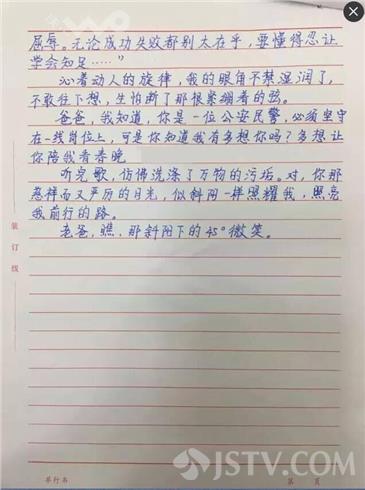 屈辱。无论成功失败都别太在乎,要懂得忍让
学会知足……"
沁着动人的旋律,我的眼角不禁湿润了,
不敢往下想,生怕断了那根紧绷着的弦。
爸爸,我知道,你是一位公安民警,必须坚守
在一线岗位上,可是你知道我有多想你吗?多想让
你陪我看春晚
听完歌,仿佛洗涤了万物的污垢。对,你那
慈祥而又严厉的目光,似斜阳一样照耀我,照亮
我前行的路。
老爸,瞧,那斜阳下的45°微笑。
装订线
单行书
第 页
JSTV.COM